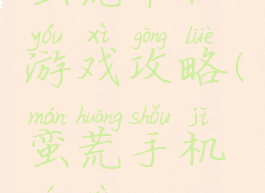 yóu xì gōng lüè
游戏攻略(
mán huāng shǒu jī
蛮荒手机